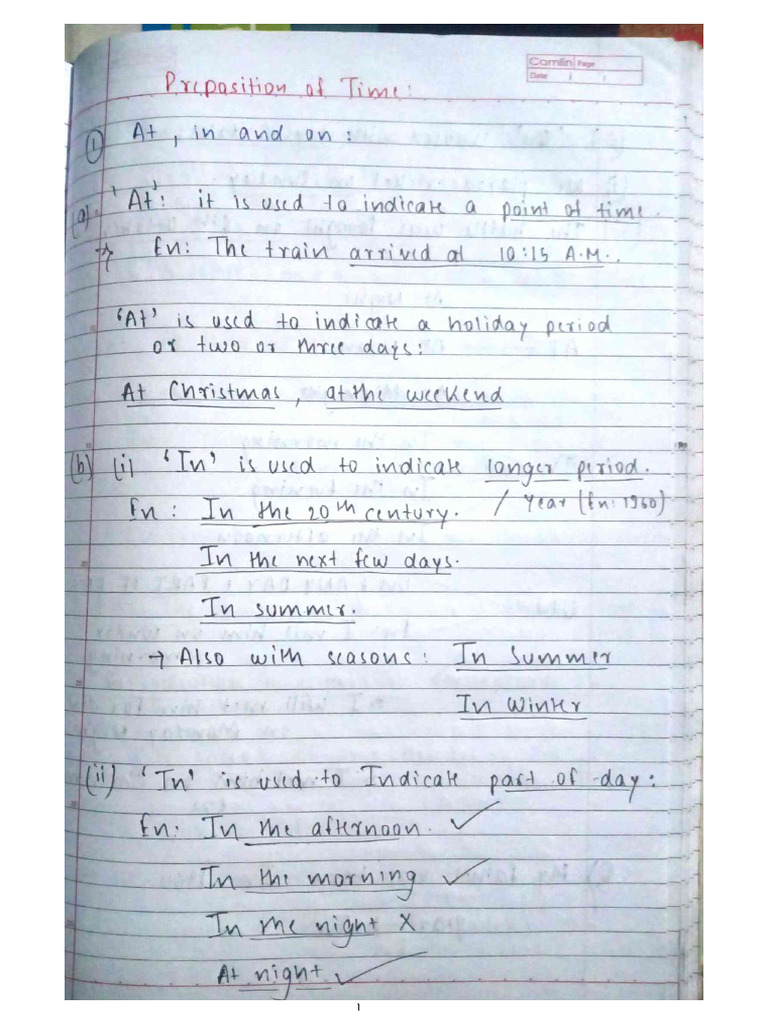 Camlin Page
Date / /
Preposition of Time:
① At, in and on:
(a) 'At': it is used to indicate a point of time.
→ En: The train arrived at 10:15 A.M.
'At' is used to indicate a holiday period
or two or three days:
At Christmas, at the weekend
(b) (i) 'In' is used to indicate longer period.
En: In the 20th century. / Year (En: 1960)
In the next few days.
In summer.
→ Also with seasons: In Summer
In Winter
(ii) 'In' is used to Indicate part of day:
En: In the afternoon. ✓
In the morning ✓
In the night X
At night ✓
1